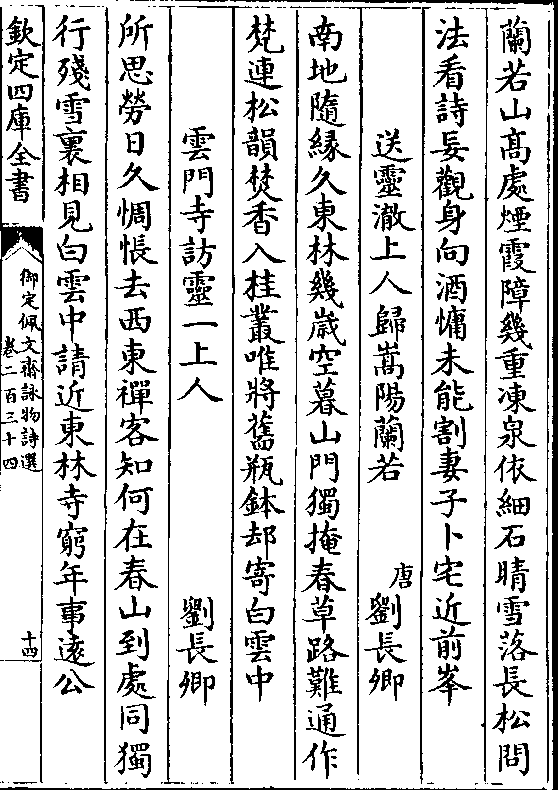 蘭若山髙處煙霞障幾重凍泉依細石晴雪落長松問
法看詩妄觀身向酒慵未能割妻子卜宅近前峯
送靈澈上人歸嵩陽蘭若 唐劉長卿
南地隨縁久東林幾歲空暮山門獨掩春草路難通作
梵連松韻焚香入桂叢唯將舊瓶鉢却寄白雲中
雲門寺訪靈一上人 劉長卿
所思勞日久惆悵去西東禪客知何在春山到處同獨
行殘雪裏相見白雲中請近東林寺窮年事遠公
欽定四庫全書
御定佩文齋詠物詩選
卷二百三十四
十四